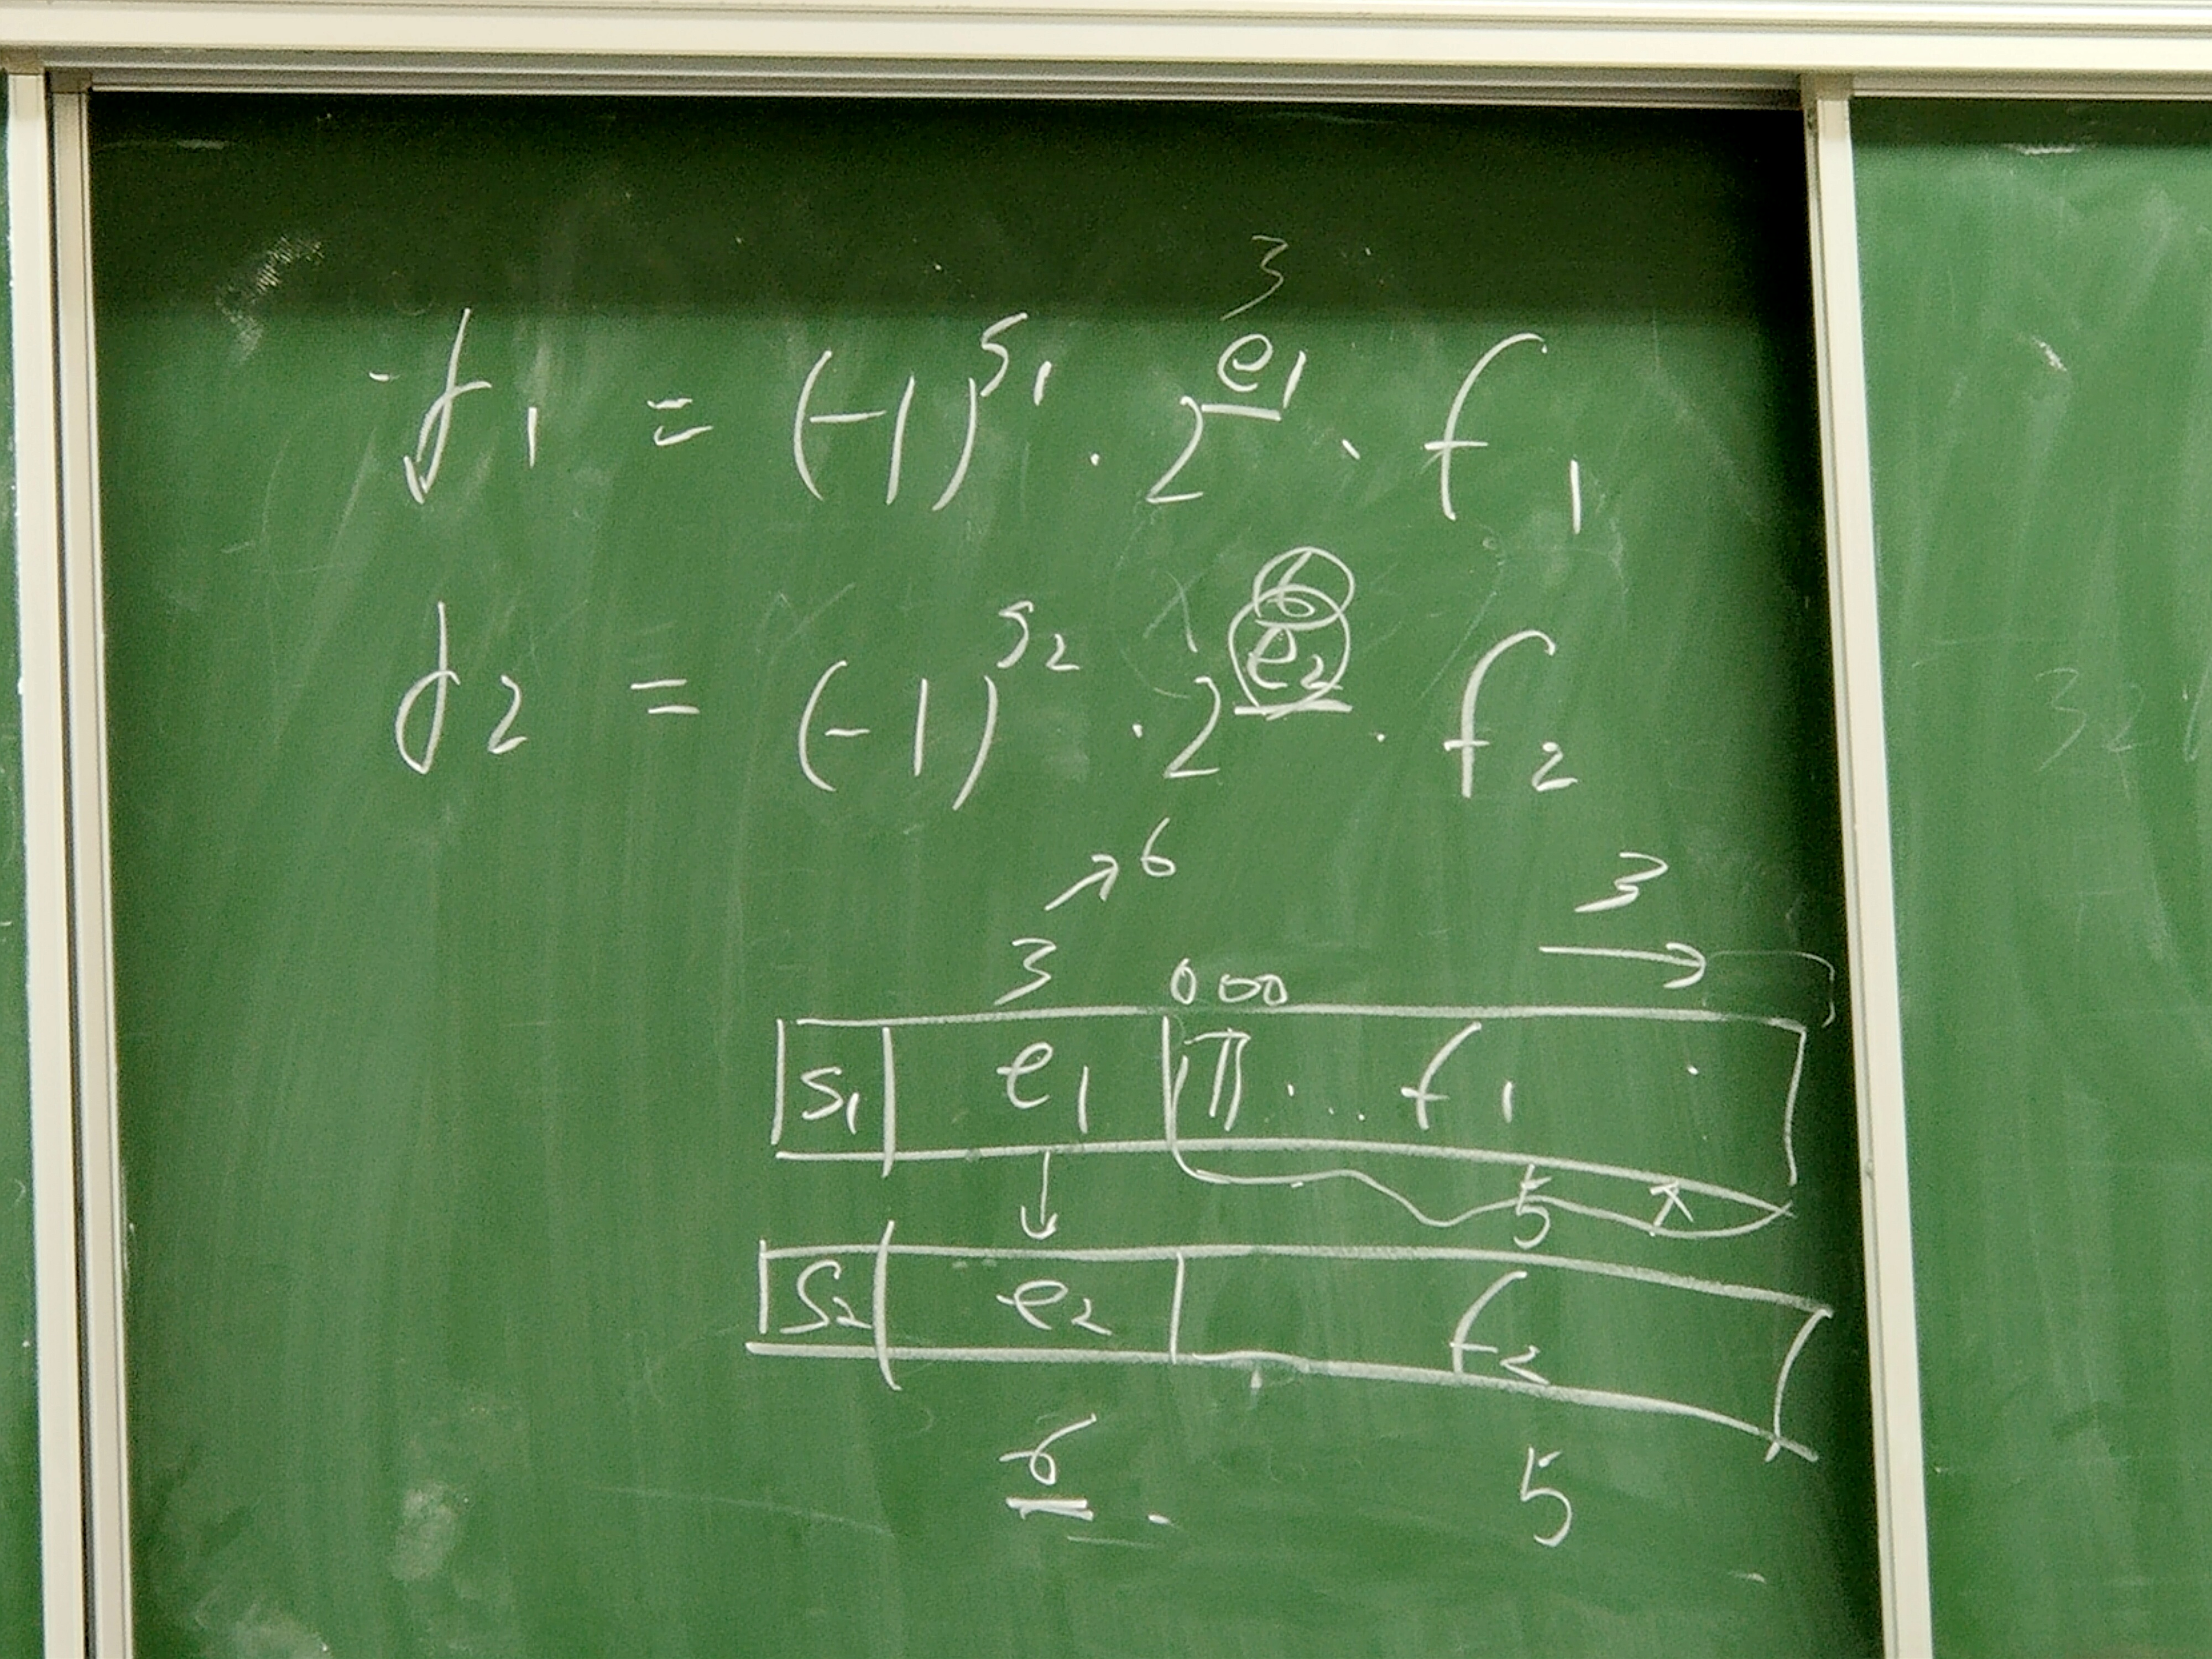 3
d₁ = (-1)^s₁ · 2^e₁ · f₁
6
d₂ = (-1)^s₂ · 2^e₂ · f₂
→ 6 3
3 000 →
s₁ e₁ ... f₁
↓ 5
s₂ e₂ f₂
6 5